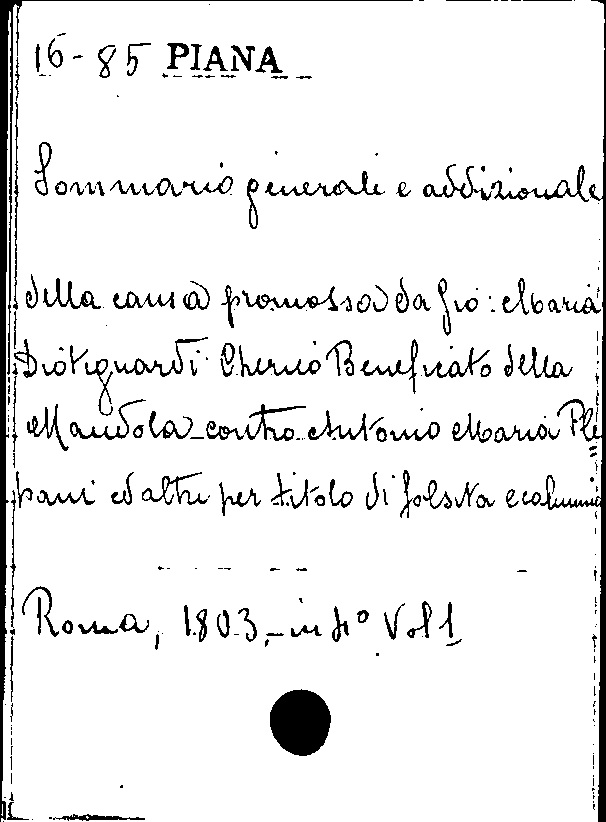 16-85 PIANA
Sommario generale e addizionale
della causa promossa da Gio: Maria
Diotiguardi Cherico Beneficato della
Mandola contro Antonio Maria Ple=
bani ed altri per titolo di falsità e calunnia
Roma, 1803, in 4° Vol 1